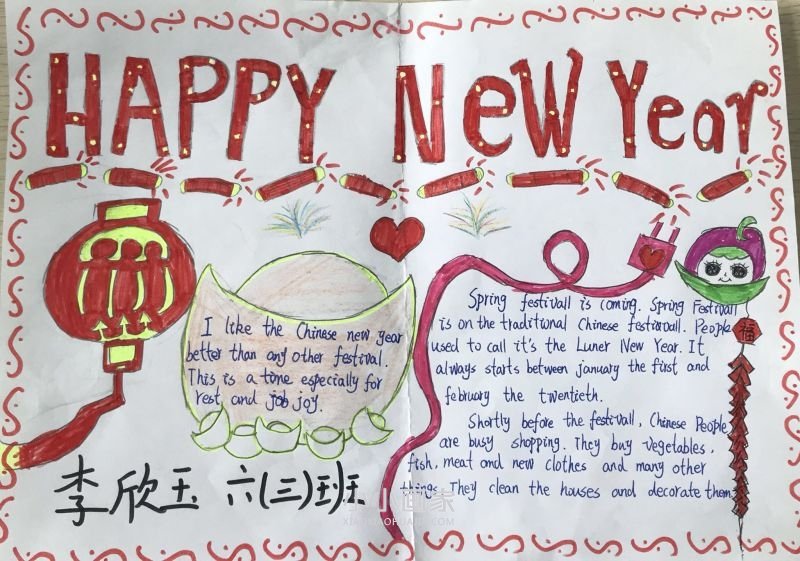 HAPPY NeW Year
I like the Chinese new year
better than any other festival.
This is a time especially for
rest and job joy.
Spring festivall is coming. Spring Festivall
is on the traditional Chinese festivvall. People
used to call it's the Luner New Year. It
always starts between january the first and
february the twentieth.
Shortly before the festivall, Chinese People
are busy shopping. They buy vegetables,
fish, meat and new clothes and many other
things. They clean the houses and decorate them
福
李欣玉 六(三)班